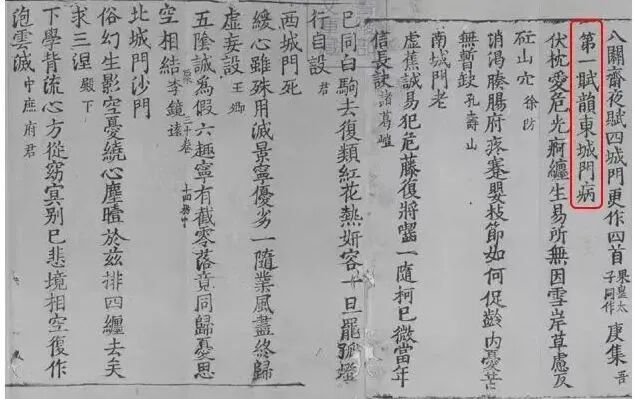 八關齋夜賦四城門更作四首 梁皇太子同作 庚集 吾
第一賦韻東城門病
伏枕愛危光痾纏生易所無因雪岸草慮反
山穴 徐防
消渴腠腸府疼蹇嬰枝節如何促齡內憂苦
無暫缺 孔壽山
南城門老
虛蕉誠易犯危藤復將囓一隨柯已微當年
信長訣 諸葛嵦
已同白駒去復類紅花熱妍容一旦罷孤燈
行自設 君
西城門死
緩心雖殊用滅景寧優劣一隨業風盡終歸
虛妄設 王卿
五陰誠為假六趣寧有截零落竟同歸憂思
空相結 李鏡遠 三十卷
北城門沙門
俗幻生影空憂繞心塵曀於茲排四纏去矣
求三涅 殿下
下學背流心方從窈冥別已悲境相空復作
泡雲滅 中庶府君